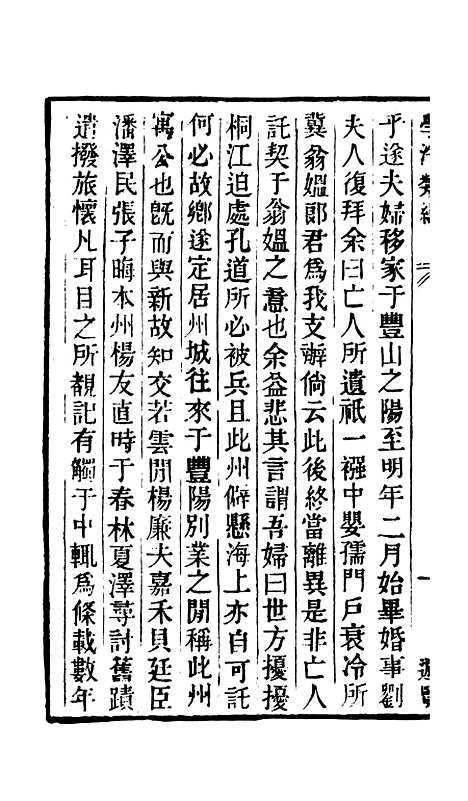 學海類編
一
遊覽
乎遂夫婦移家于豐山之陽至明年二月始畢婚事劉
夫人復拜余曰亡人所遺祇一襁中嬰孺門戶衰冷所
冀翁媼郎君爲我支辦倘云此後終當離異是非亡人
託契于翁媼之意也余益悲其言謂吾婦曰世方擾擾
桐江迫處孔道所必被兵且此州僻懸海上亦自可託
何必故鄉遂定居州城往來于豐陽別業之閒稱此州
寓公也旣而與新故知交若雲閒楊廉夫嘉禾貝廷臣
潘澤民張子晦本州楊友直時于春林夏澤尋討舊蹟
遣撥旅懷凡耳目之所覩記有觸于中輒爲條載數年